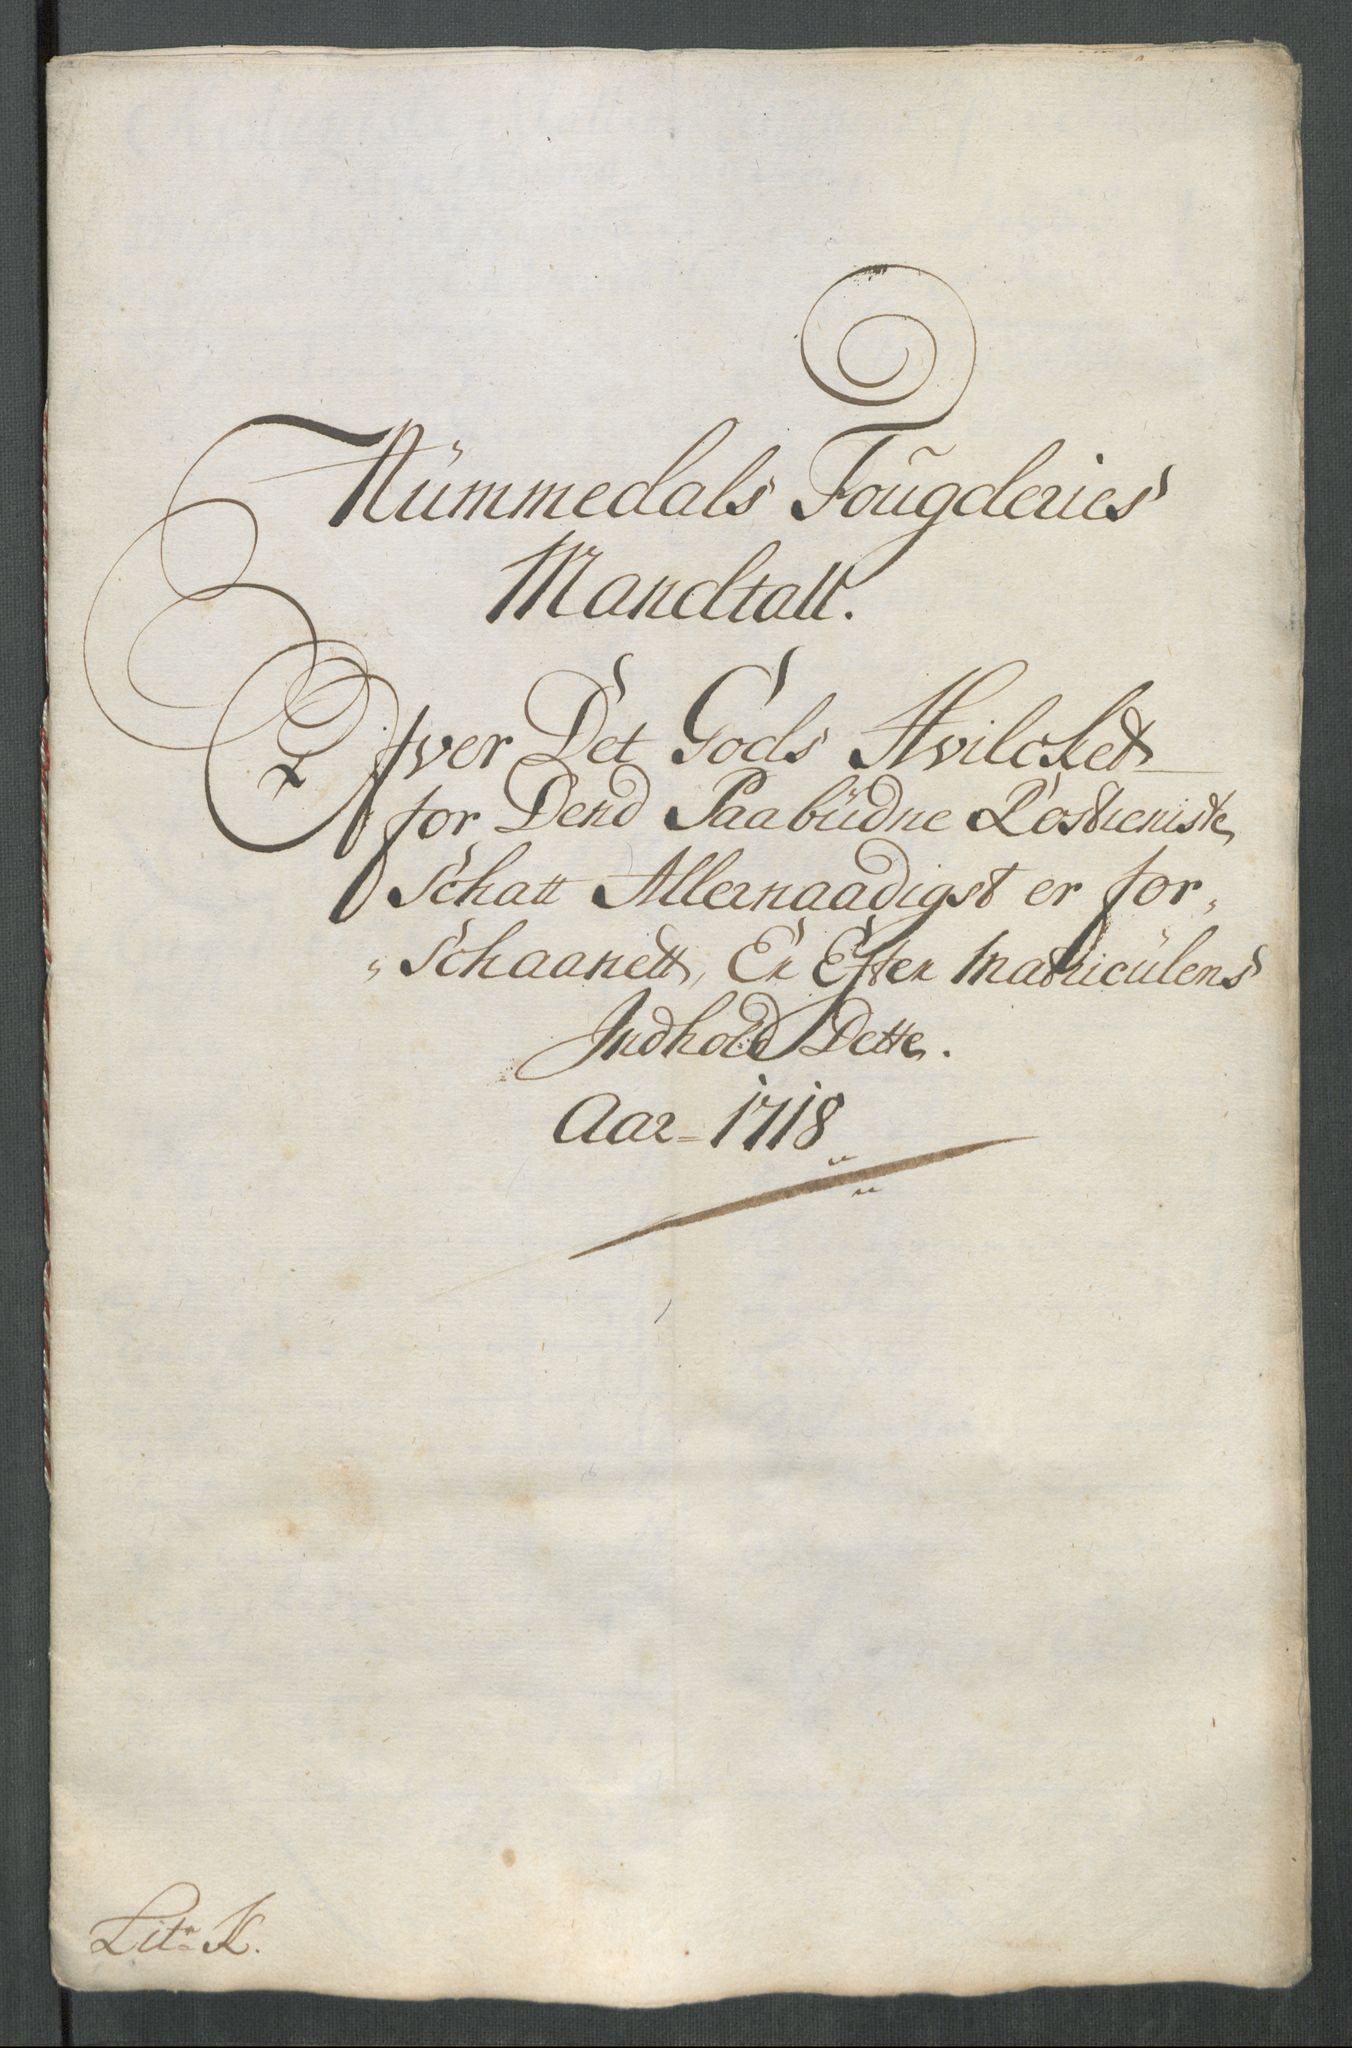 Nümmedals Foũgderies
Mandtall.
Ofver Det Gods Hvilcket
for Dend Paabüdne Rostieniste
Schatt Allernaadigst er for„
„Schaanett, Er Efter Matriculens
Indhold Dette.
Aar = 1718
Litr K.